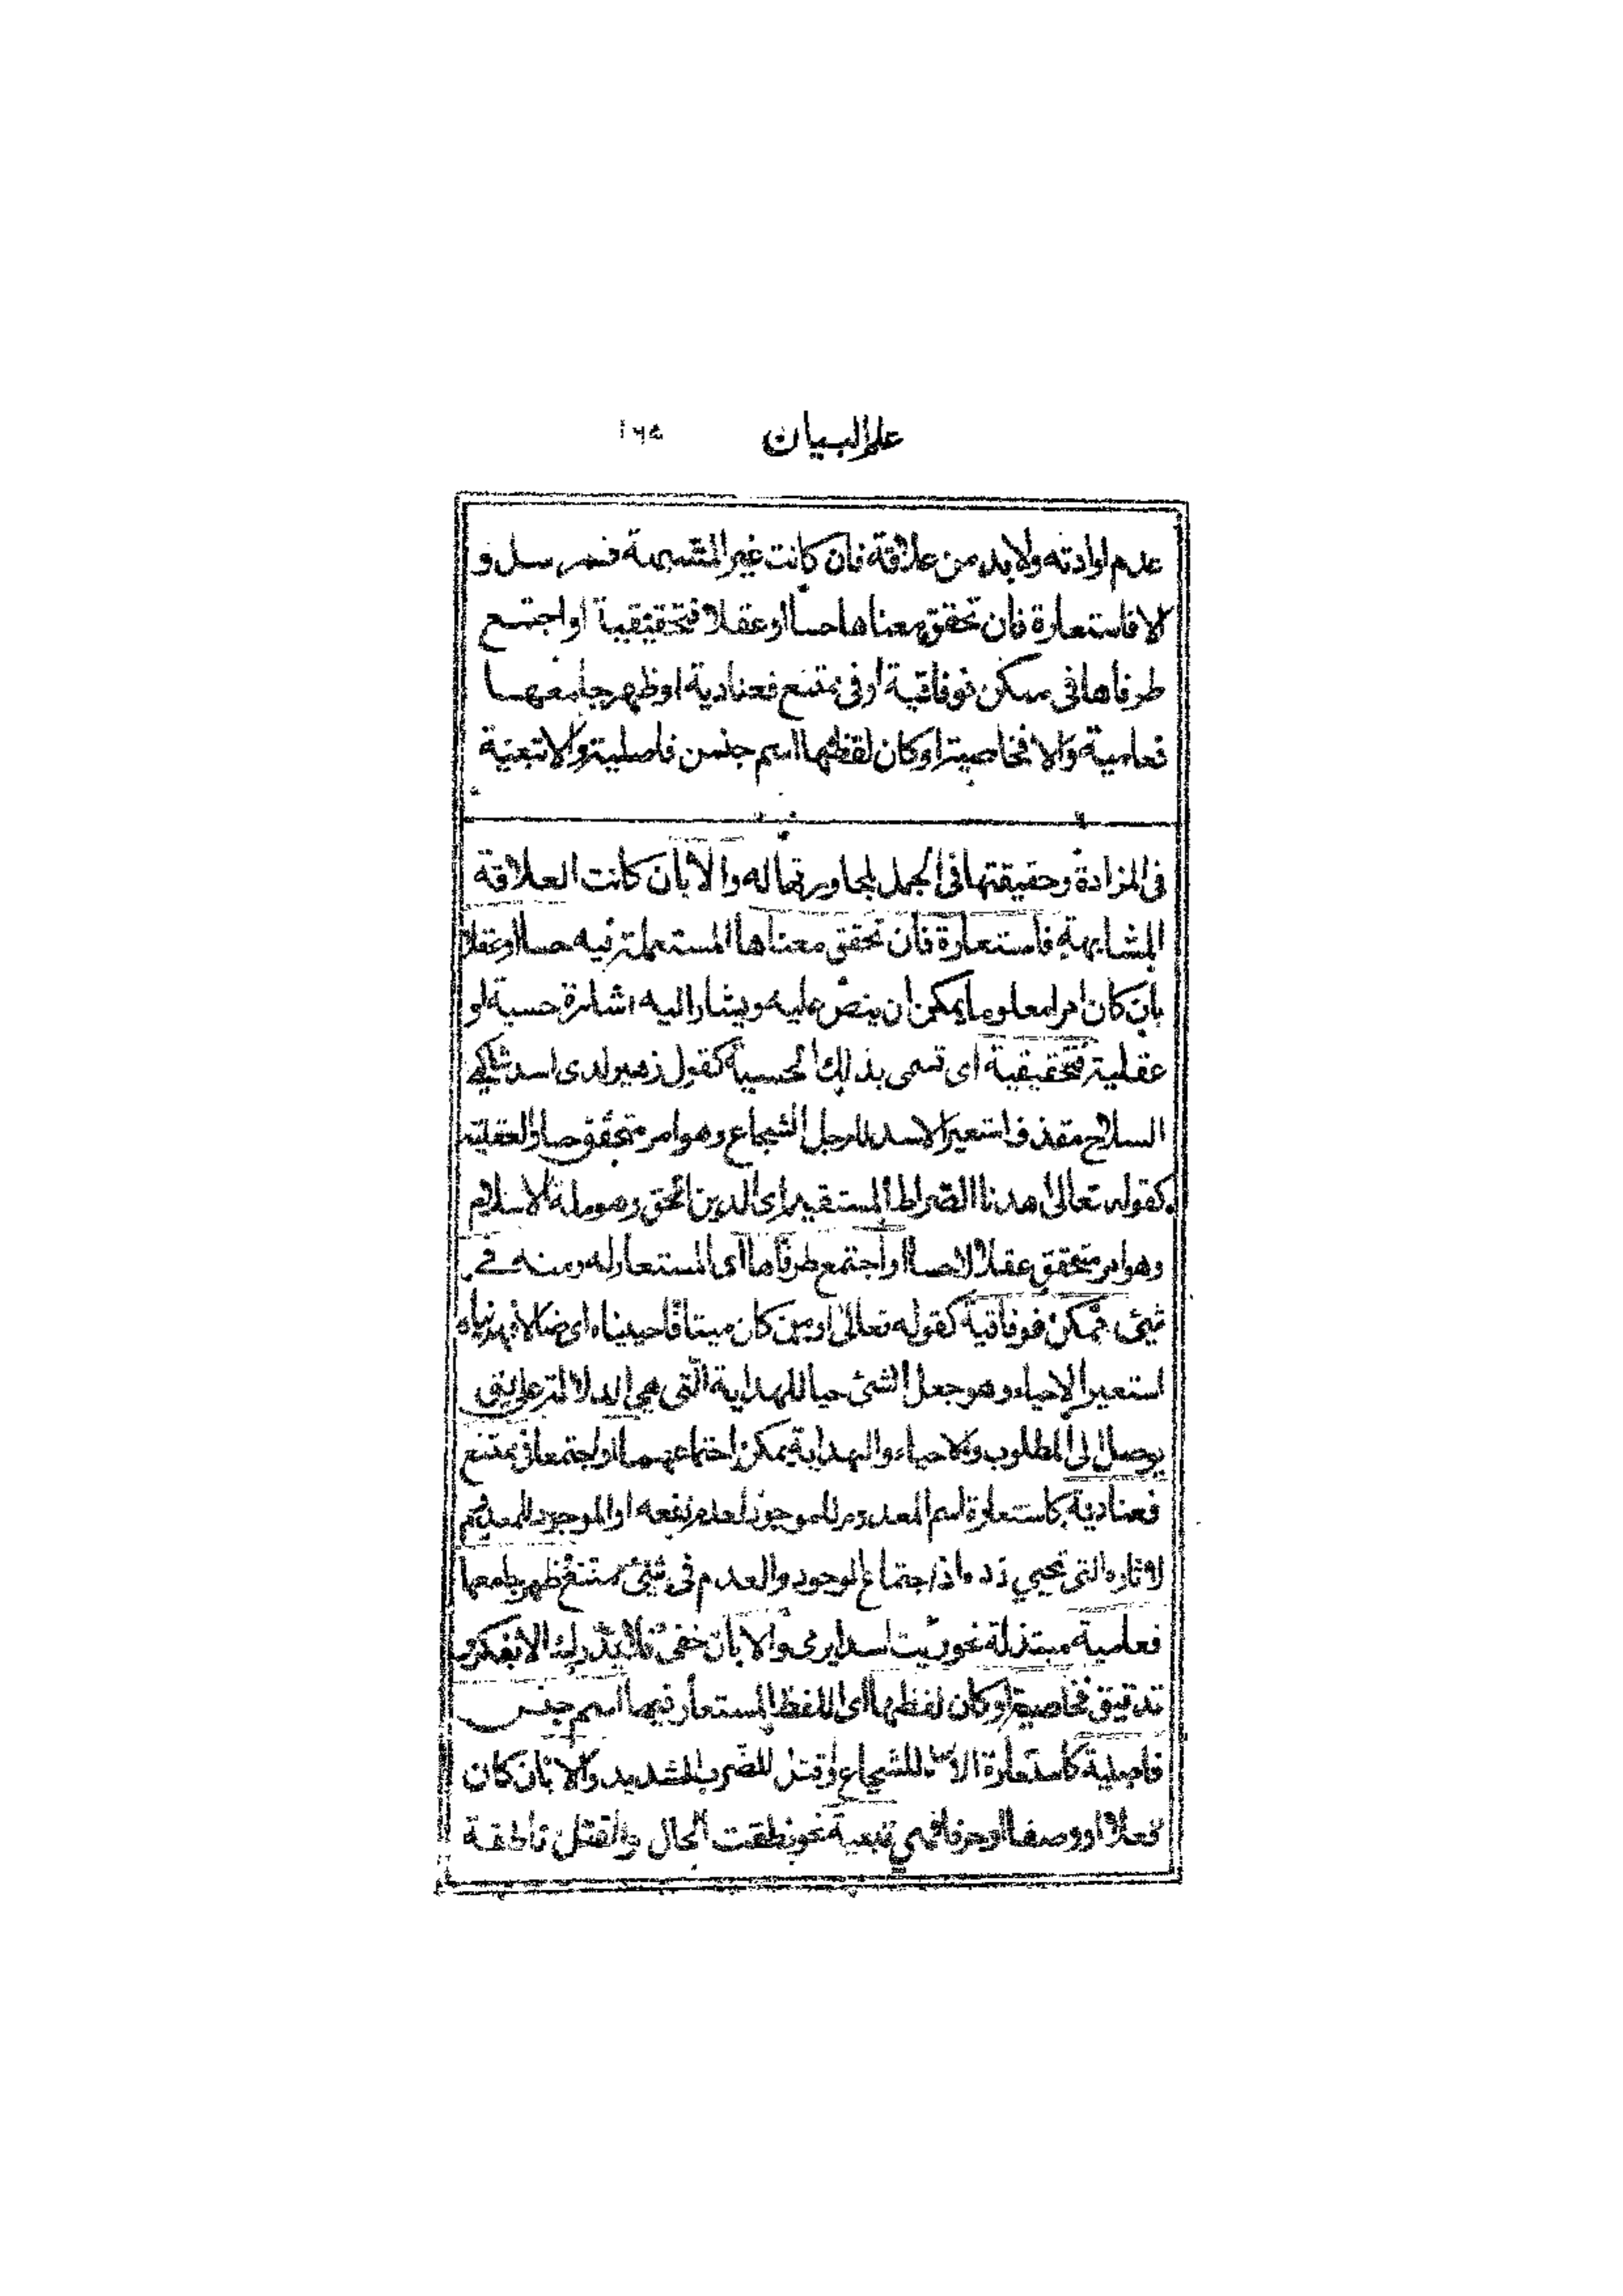 علم البيان ١٦٥
عدم ارادته ولابد من علاقة فان كانت غير المشبهة فمرسل و
الا فاستعارة فان تحقق معناها حسا اوعقلا فتحقيقية او اجتمع
طرفاها فى ممكن فوفاقية اوفى ممتنع فعنادية اوظهر جامعها
فعامية والا فخاصية اوكان لفظها اسم جنس فاصلية والا تبعية
فى المزادة وحقيقتها فى الجمل لمجاورتها له والا بان كانت العلاقة
المشابهة فاستعارة فان تحقق معناها المستعملة فيه حسا اوعقلا
بان كان امرا معلوما يمكن ان ينص عليه ويشار اليه اشارة حسية او
عقلية فتحقيقية اى تسمى بذلك الحسية كقول زهير لدى اسد شاكى
السلاح مقذف استعير الاسد للرجل الشجاع وهو امر متحقق حسا والعقلية
كقوله تعالى اهدنا الصراط المستقيم اى الدين الحق وهو ملة الاسلام
وهو امر متحقق عقلا لاحسا او اجتمع طرفاها اى المستعار له ومنه فى
شئ ممكن فوفاقية كقوله تعالى اومن كان ميتا فاحييناه اى ضالا فهديناه
استعير الاحياء وهو جعل الشئ حيا للهداية التى هى الدلالة على
يوصل الى المطلوب والاحياء والهداية يمكن اجتماعهما او اجتمعا فى ممتنع
فعنادية كاستعارة اسم المعدوم للموجود لعدم نفعه او الموجود للمعدوم
لاثاره التى تحيي ذكره اذ اجتماع الوجود والعدم فى شئ ممتنع اوظهر جامعها
فعامية مبتذلة نحو رئيت اسدا يرمى والا بان خفى فلا يدرك الا بفكر و
تدقيق فخاصية اوكان لفظها اى اللفظ المستعار فيها اسم جنس
فاصلية كاستعارة الاسد للشجاع وقتل للضرب الشديد والا بان كان
فعلا او وصفا او حرفا فهي تبعية نحو نطقت الحال والقتل ناطقة